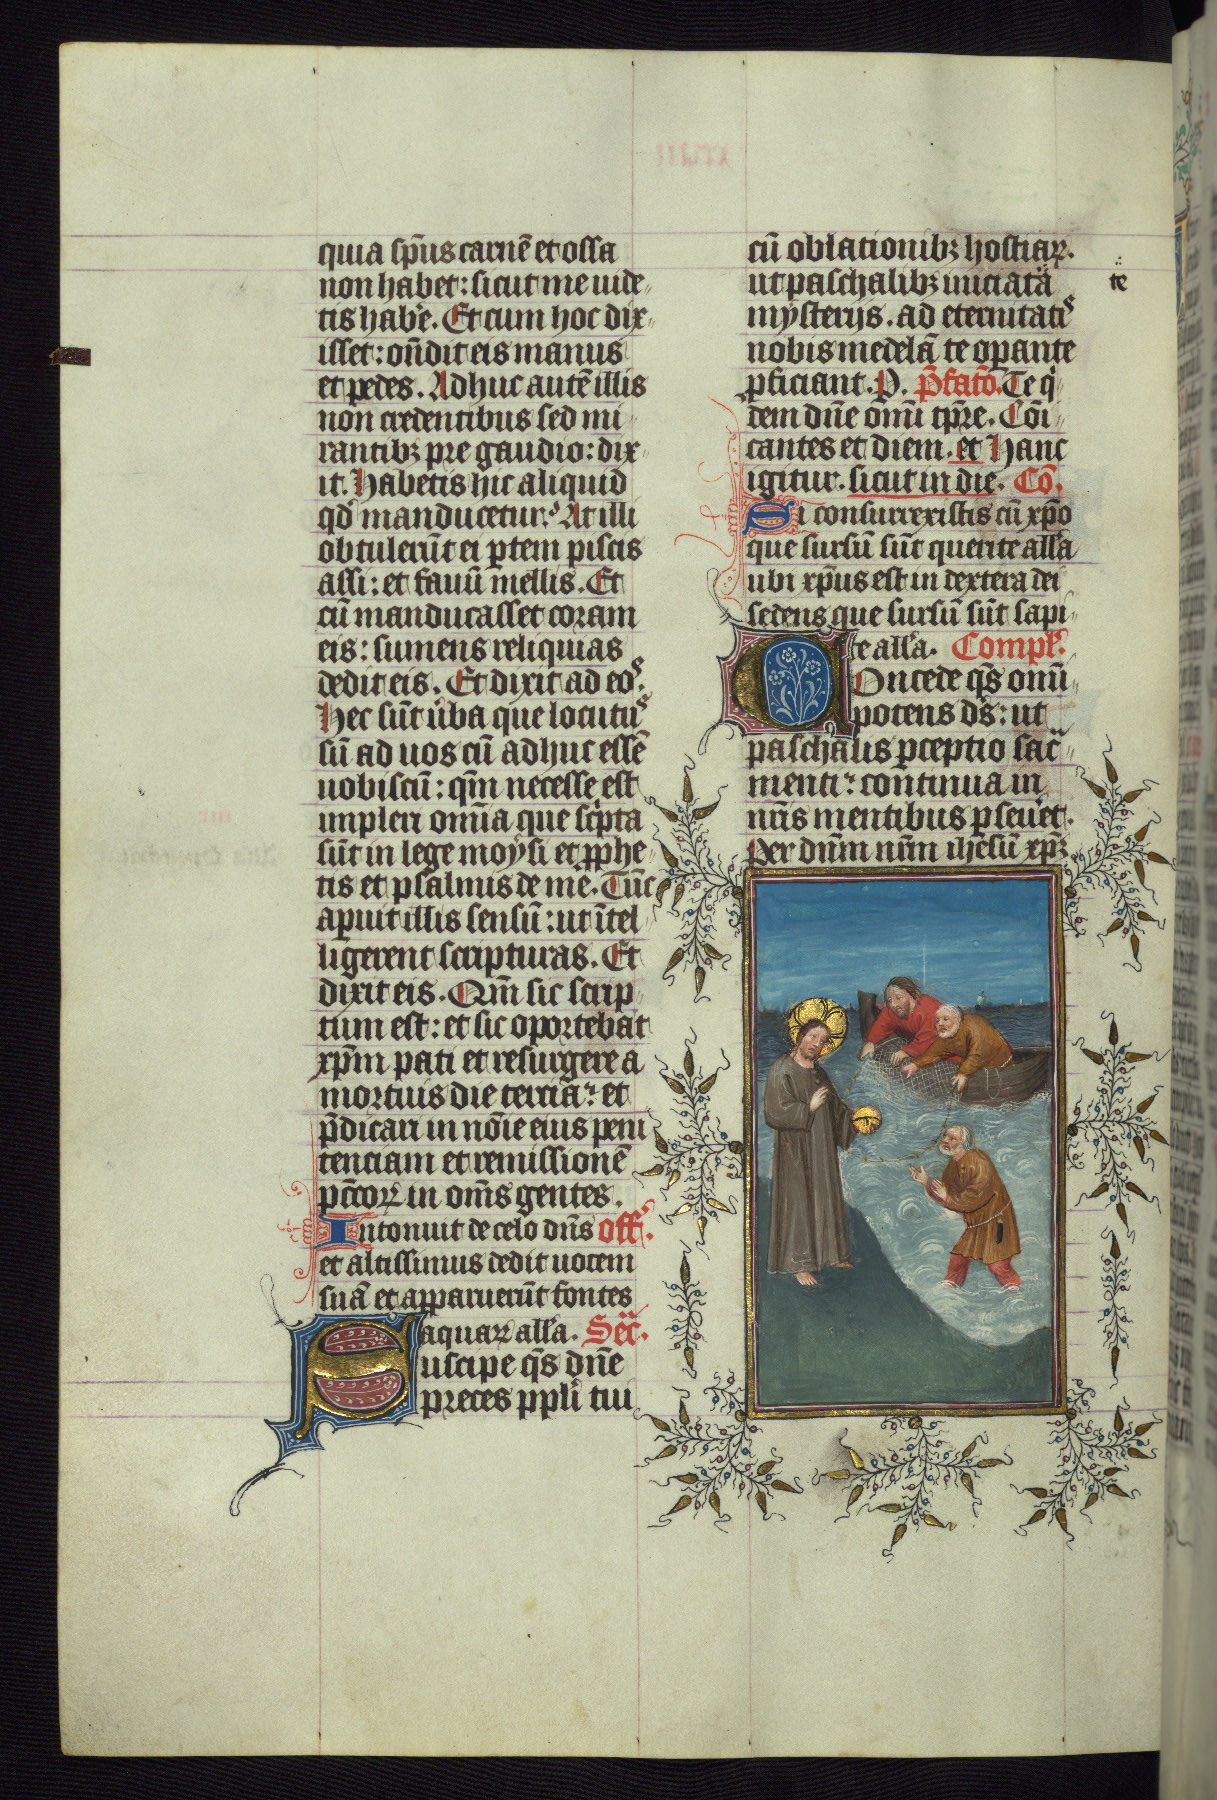 quia sp̄us carnē et ossa
non habet: sicut me uide
tis hab'e. Et cum hoc dix
isset: on̄dit eis manus
et pedes. Adhuc autē illis
non credentibus sed mi
rantibꝫ pre gaudio: dix
it. Habetis hic aliquid
qd' manducetur? At illi
obtulerūt ei ꝑtem piscis
assi: et fauū mellis. Et
cū manducasset coram
eis: sumens reliquias
dedit eis. Et dixit ad eos.
Hec sūt u'ba que locutus
sū ad uos cū adhuc essē
uobiscū: qm̄ necesse est
impleri om̄ia que sc'pta
sūt in lege moysi et ꝓphe
tis et psalmis de me. Tūc
apuit illis sensū: ut ītel
ligerent scripturas. Et
dixit eis. Qm̄ sic scrip
tum est: et sic oportebat
xp̄m pati et resurgere a
mortuis die tertia: et
p̄dicari in noīe eius peni
tenciam et remissionē
pc̄cōꝝ in om̄s gentes.
Intonuit de celo dn̄s off̄.
et altissimus dedit uocem
suā et apparuerūt fontes
aquaꝝ alla. Sec̄.
Suscipe qs̄ dn̄e
preces ppl'i tui
cū oblationibꝫ hostiaꝝ.
ut paschalibꝫ initiata
te
mysterijs. ad eternitatis
nobis medelā te oꝑante
ꝑficiant. P. P̄fatō. Te q'
dem dn̄e om̄i tp̄re. Cōi
cantes et diem. et Hanc
igitur. sicut in die. Cō.
Si consurrexistis cū xp̄o
que sursū sūt querite alla
ubi xp̄us est in dextera dei
sedens que sursū sūt sapi
te alla. Compl'.
Concede qs̄ omni
potens ds̄: ut
paschalis ꝑceptio sac̄
menti: continua in
nr̄is mentibus ꝑseuet.
Per dn̄m nr̄m ihesū xp̄ꝫ